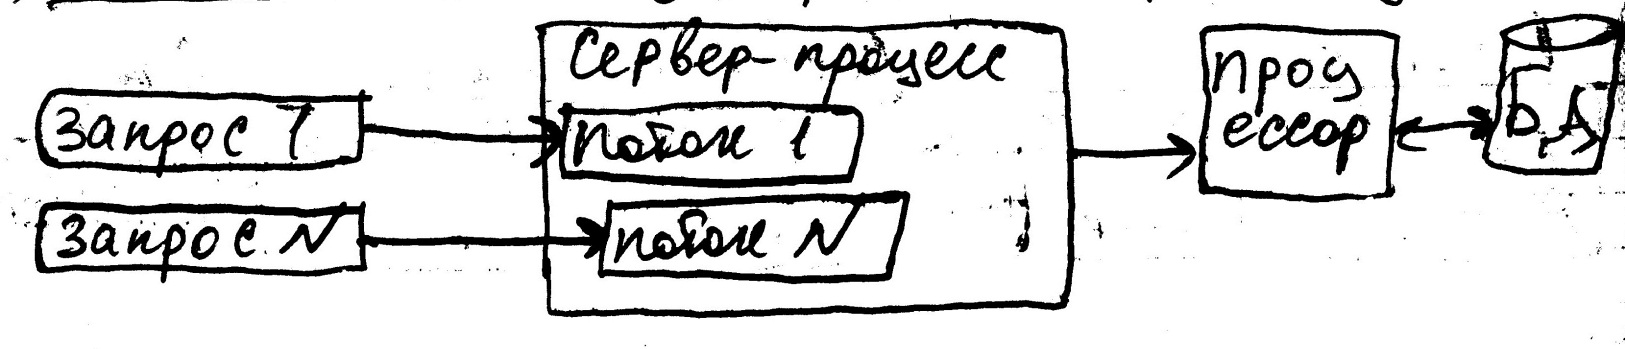 Сервер-процесс
Запрос 1
Поток 1
Запрос N
Поток N
проц
ессор
БД